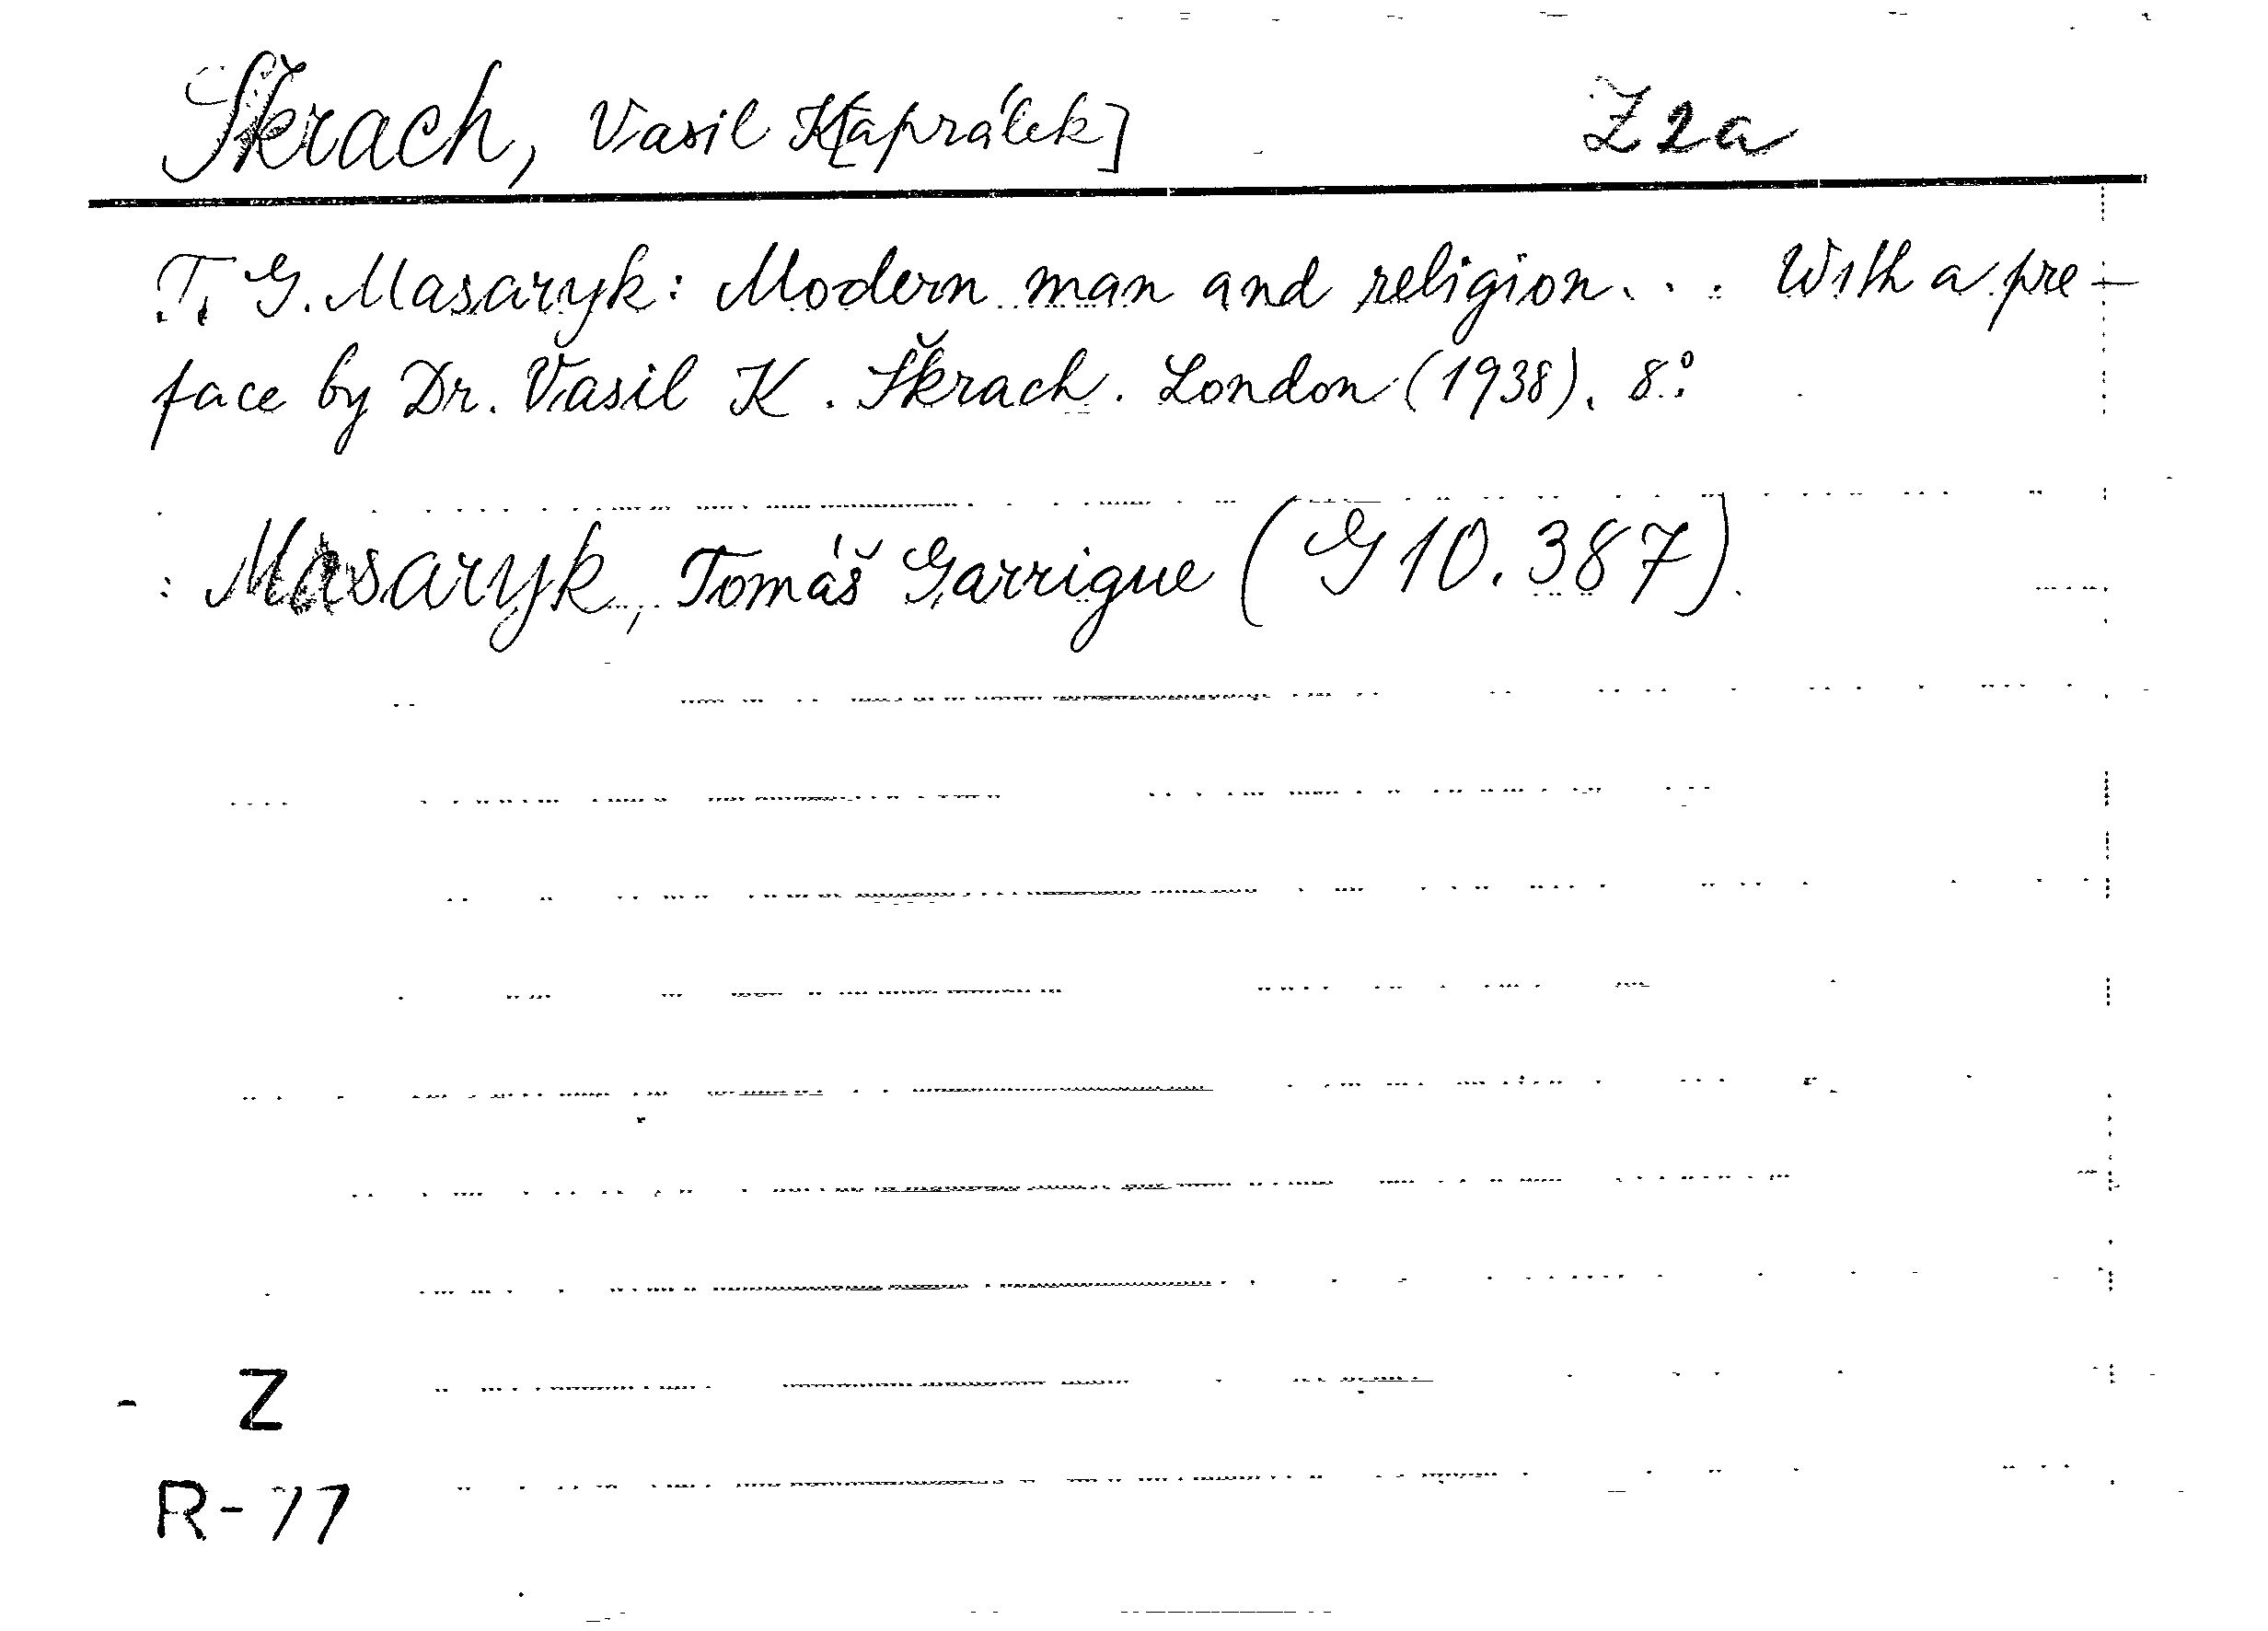 Škrach, Vasil K[aprálek] Z2a
T. G. Masaryk: Modern man and religion... With a pre-
face by Dr. Vasil K. Škrach. London (1938). 8°.
: Masaryk, Tomáš Garrigue (G 10.387).
Z
R-77